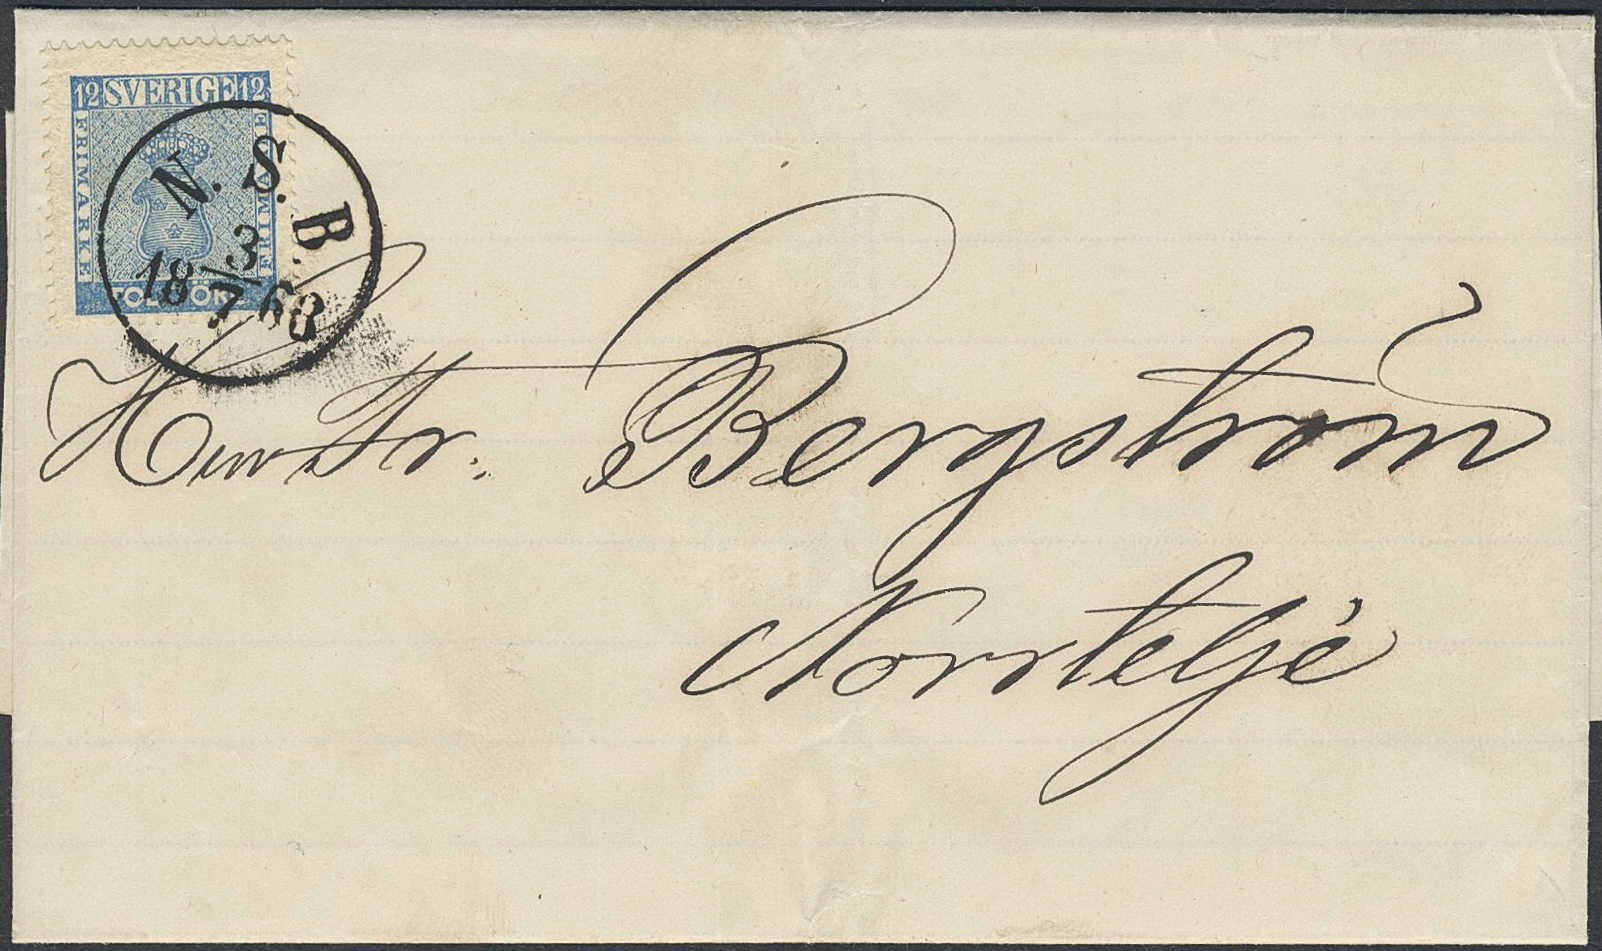 12 SVERIGE 12
FRIMARKE
FRIMARKE
N. S. B.
18 3/7 68
Herr Fr. Bergström
Norrteljé